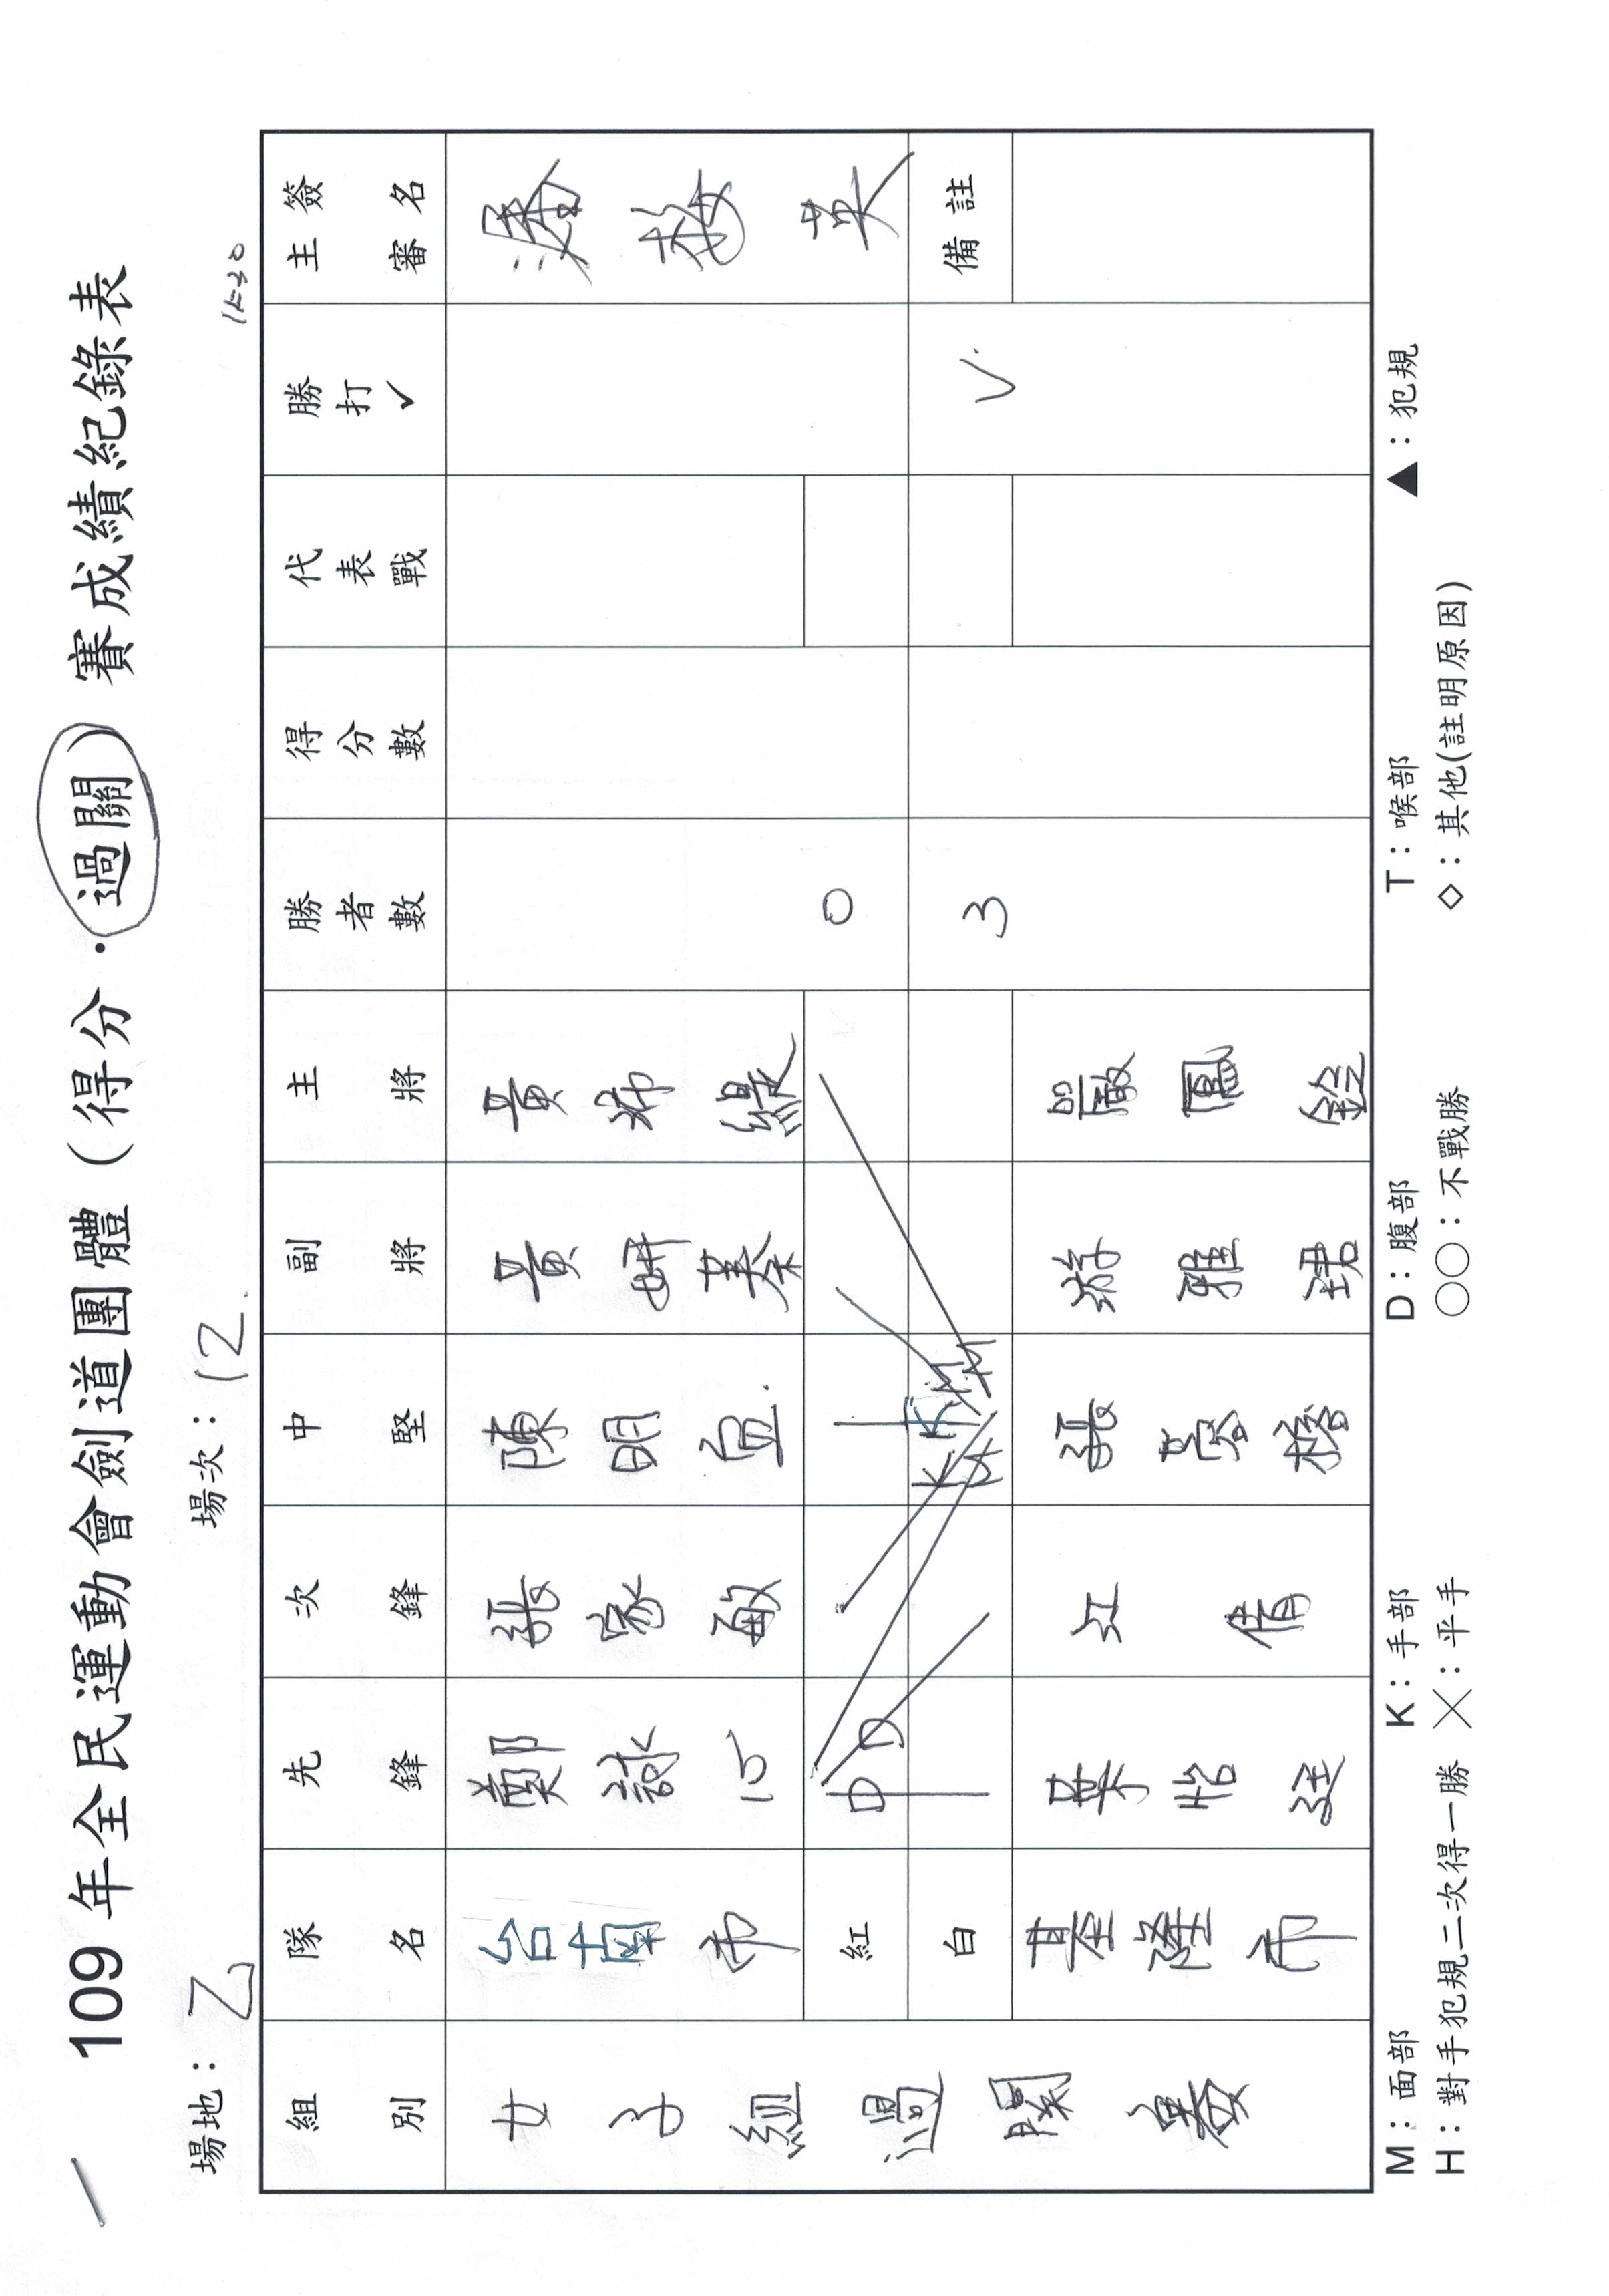 109 年全民運動會劍道團體（得分．過關）賽成績紀錄表
場地：乙 場次：12. 11:30
組別 隊名 先鋒 次鋒 中堅 副將 主將 勝者數 得分數 代表戰 勝打✓ 主審簽名
女子組過關賽
台南市 張家敏 陳明 黃妍蓁 黃 緹
紅 D D 0
白 K K M M 3 V 備註
基隆市 葉怡廷 江倩 張 游雅珺 歐鳳銓
M：面部 K：手部 D：腹部 T：喉部 ▲：犯規
H：對手犯規二次得一勝 ╳：平手 ○○：不戰勝 ◇：其他(註明原因)